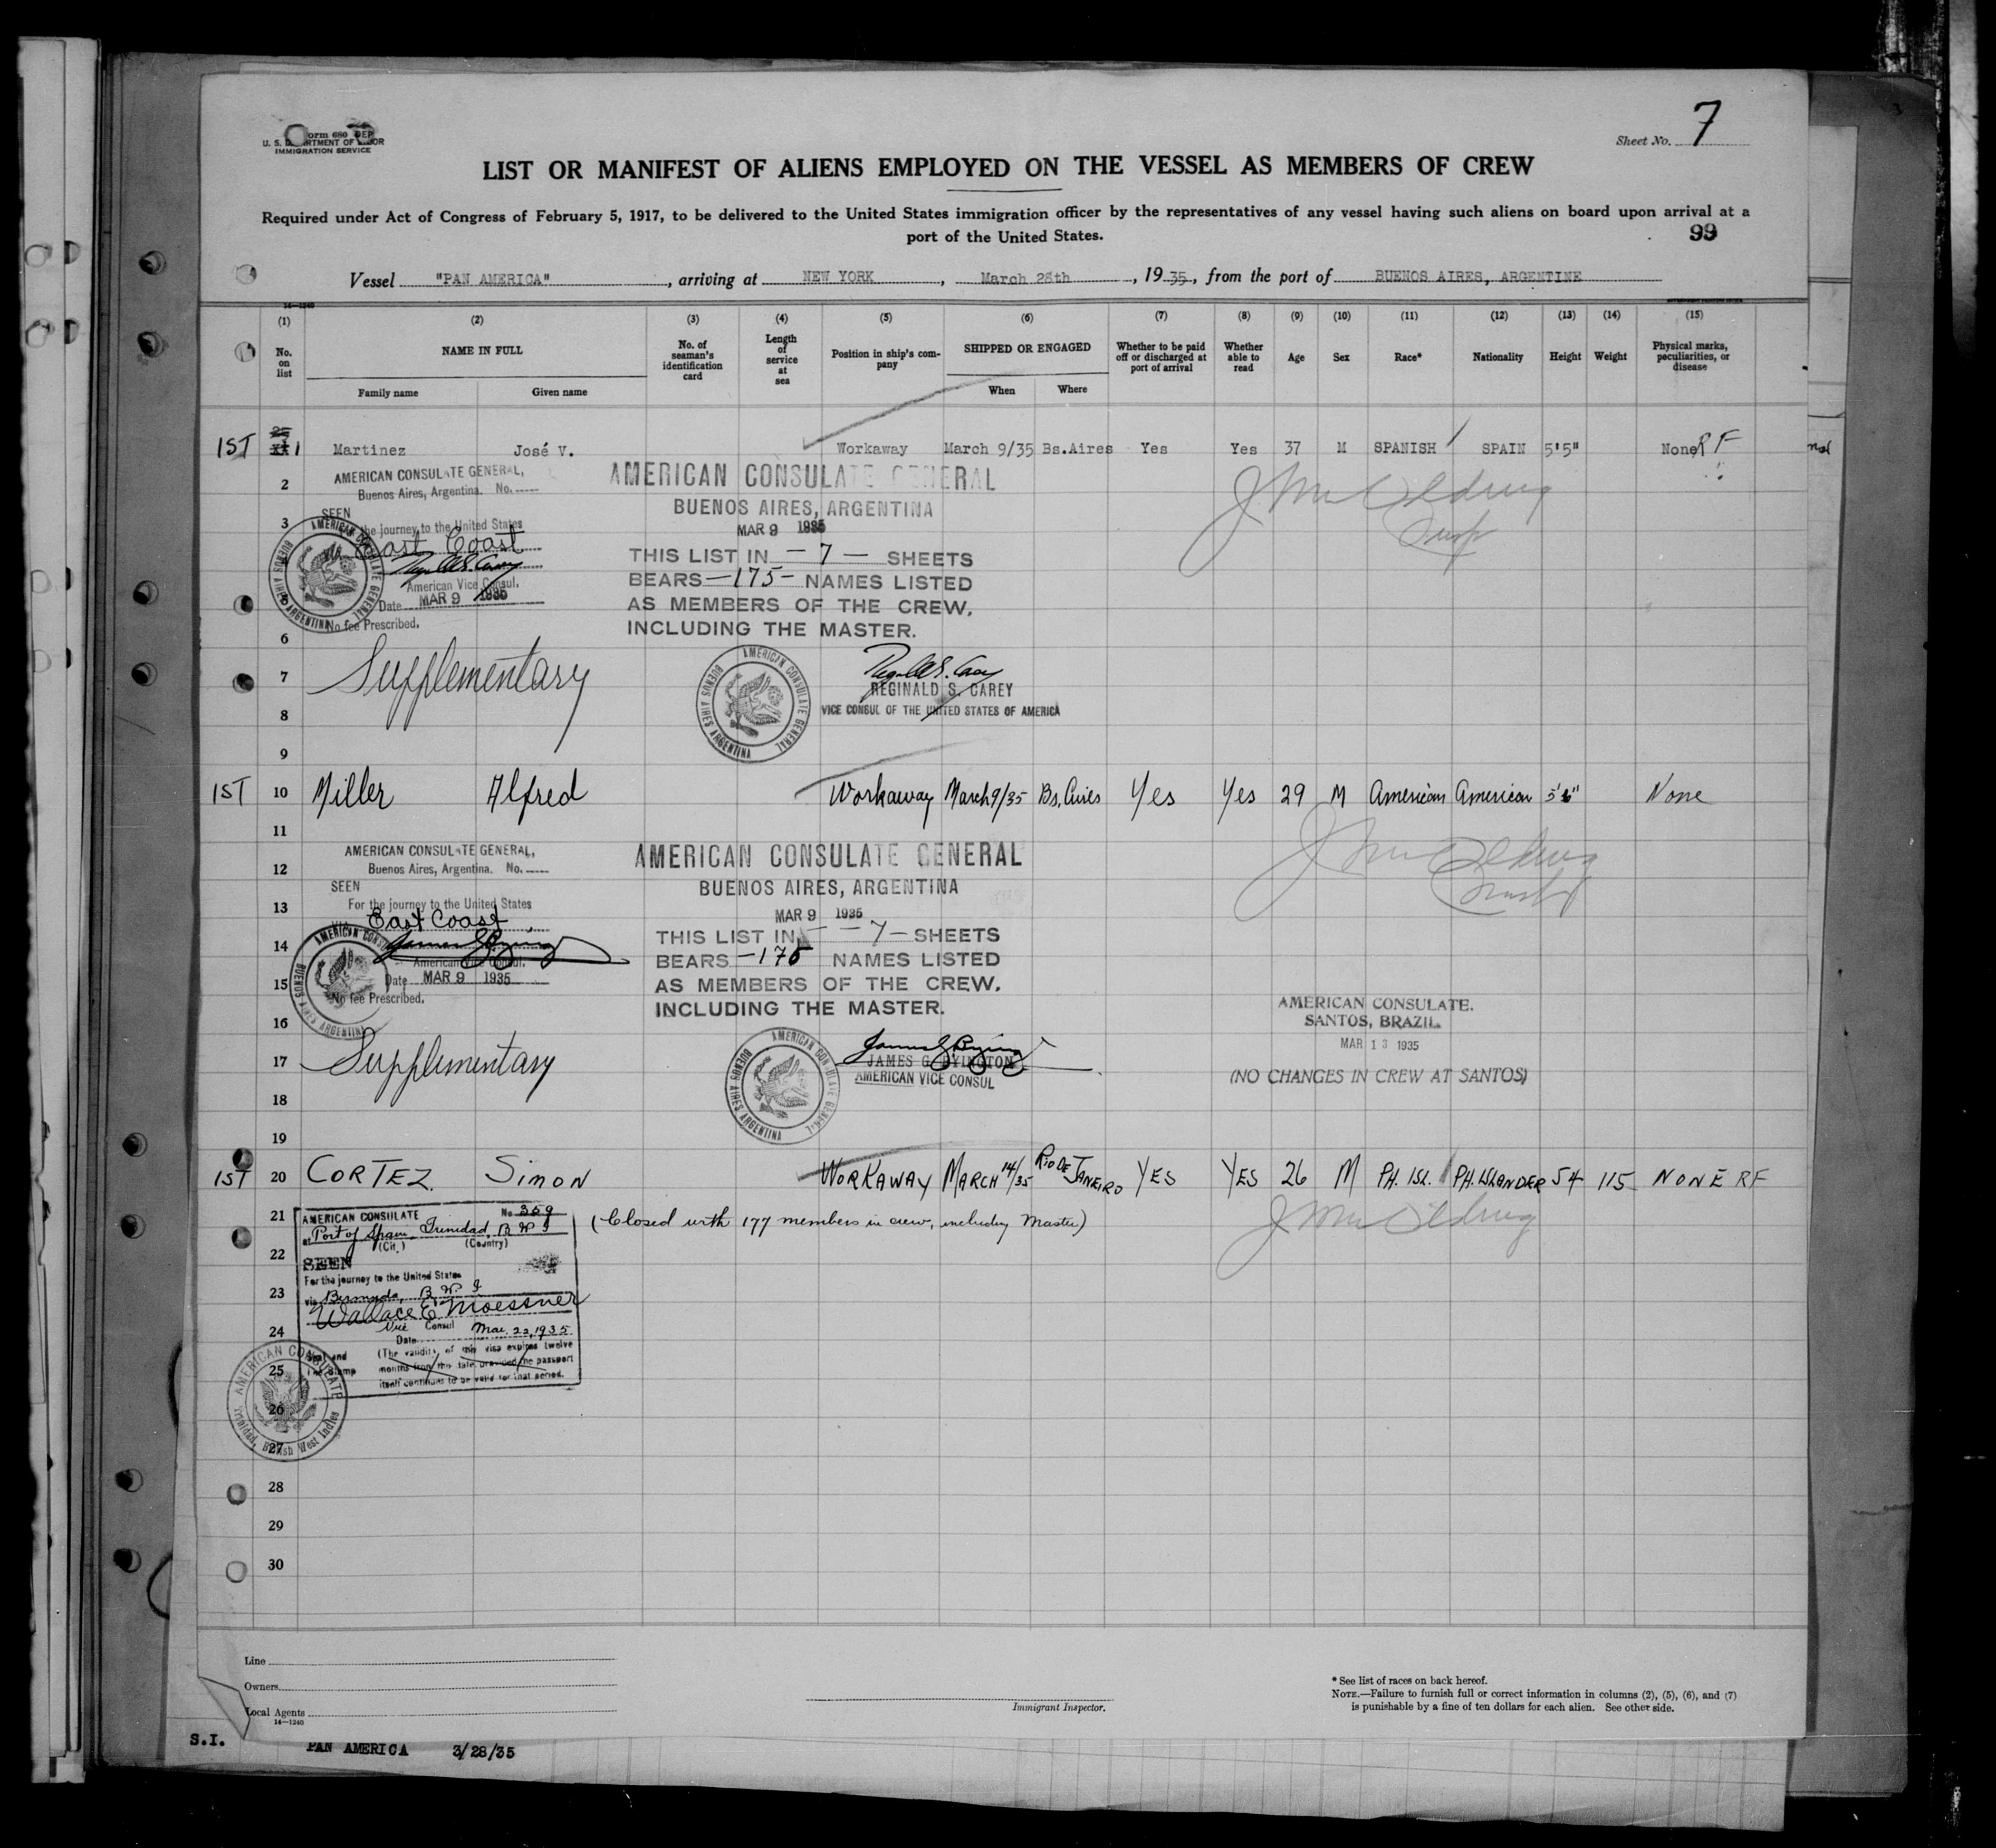 Form 680 DEP
U. S. DEPARTMENT OF LABOR
IMMIGRATION SERVICE
Sheet No. 7
LIST OR MANIFEST OF ALIENS EMPLOYED ON THE VESSEL AS MEMBERS OF CREW
Required under Act of Congress of February 5, 1917, to be delivered to the United States immigration officer by the representatives of any vessel having such aliens on board upon arrival at a
port of the United States.
99
Vessel "PAN AMERICA", arriving at NEW YORK, March 28th, 1935, from the port of BUENOS AIRES, ARGENTINE
14—1240
(1) (2) (3) (4) (5) (6) (7) (8) (9) (10) (11) (12) (13) (14) (15)
No. on list
NAME IN FULL
Family name Given name
No. of seaman's identification card
Length of service at sea
Position in ship's company
SHIPPED OR ENGAGED
When Where
Whether to be paid off or discharged at port of arrival
Whether able to read
Age
Sex
Race*
Nationality
Height
Weight
Physical marks, peculiarities, or disease
1ST 1 Martinez José V. Workaway March 9/35 Bs.Aires Yes Yes 37 M SPANISH SPAIN 5'5" None RF
2
AMERICAN CONSULATE GENERAL,
Buenos Aires, Argentina. No.
3
SEEN
the journey to the United States
East Coast
American Vice Consul.
Date MAR 9 1935
No fee Prescribed.
AMERICAN CONSULATE GENERAL
BUENOS AIRES ARGENTINA
AMERICAN CONSULATE GENERAL
BUENOS AIRES, ARGENTINA
MAR 9 1935
THIS LIST IN —7— SHEETS
BEARS —175— NAMES LISTED
AS MEMBERS OF THE CREW,
INCLUDING THE MASTER.
6
7
Supplementary
AMERICAN CONSULATE GENERAL
BUENOS AIRES ARGENTINA
REGINALD S. CAREY
VICE CONSUL OF THE UNITED STATES OF AMERICA
8
9
1ST 10 Miller Alfred Workaway March 9/35 Bs. Aires Yes Yes 29 M American American 5'6" None
11
12
AMERICAN CONSULATE GENERAL,
Buenos Aires, Argentina. No.
SEEN
13
For the journey to the United States
East Coast
14
American Vice Consul.
15
Date MAR 9 1935
No fee Prescribed.
AMERICAN CONSULATE GENERAL
BUENOS AIRES ARGENTINA
AMERICAN CONSULATE GENERAL
BUENOS AIRES, ARGENTINA
MAR 9 1935
THIS LIST IN —7— SHEETS
BEARS —176 NAMES LISTED
AS MEMBERS OF THE CREW.
INCLUDING THE MASTER.
16
17
Supplementary
AMERICAN CONSULATE GENERAL
BUENOS AIRES ARGENTINA
JAMES G. BYINGTON
AMERICAN VICE CONSUL
AMERICAN CONSULATE.
SANTOS, BRAZIL.
MAR 13 1935
(NO CHANGES IN CREW AT SANTOS)
18
19
1ST 20 CORTEZ. SIMON WORKAWAY MARCH 14/35 RIO DE JANEIRO YES YES 26 M PH. ISL. PH. ISLANDER 54 115 NONE RF
21
AMERICAN CONSULATE No. 359
at Port of Spain, Trinidad, B W I
(City) (Country)
(Closed with 177 members in crew, including Master)
22
SEEN
For the journey to the United States
23
via Bermuda, B W I
Wallace E. Moessner
24
Vice Consul Mar. 22, 1935
Date
(The validity of this visa expires twelve
months from this date provided the passport
itself continues to be valid for that period.
25
Seal and
Fee Stamp
AMERICAN CONSULATE
Trinidad, British West Indies
26
27
28
29
30
Line
Owners
Local Agents
14—1240
Immigrant Inspector.
* See list of races on back hereof.
NOTE.—Failure to furnish full or correct information in columns (2), (5), (6), and (7)
is punishable by a fine of ten dollars for each alien. See other side.
S.I.
PAN AMERICA 3/28/35